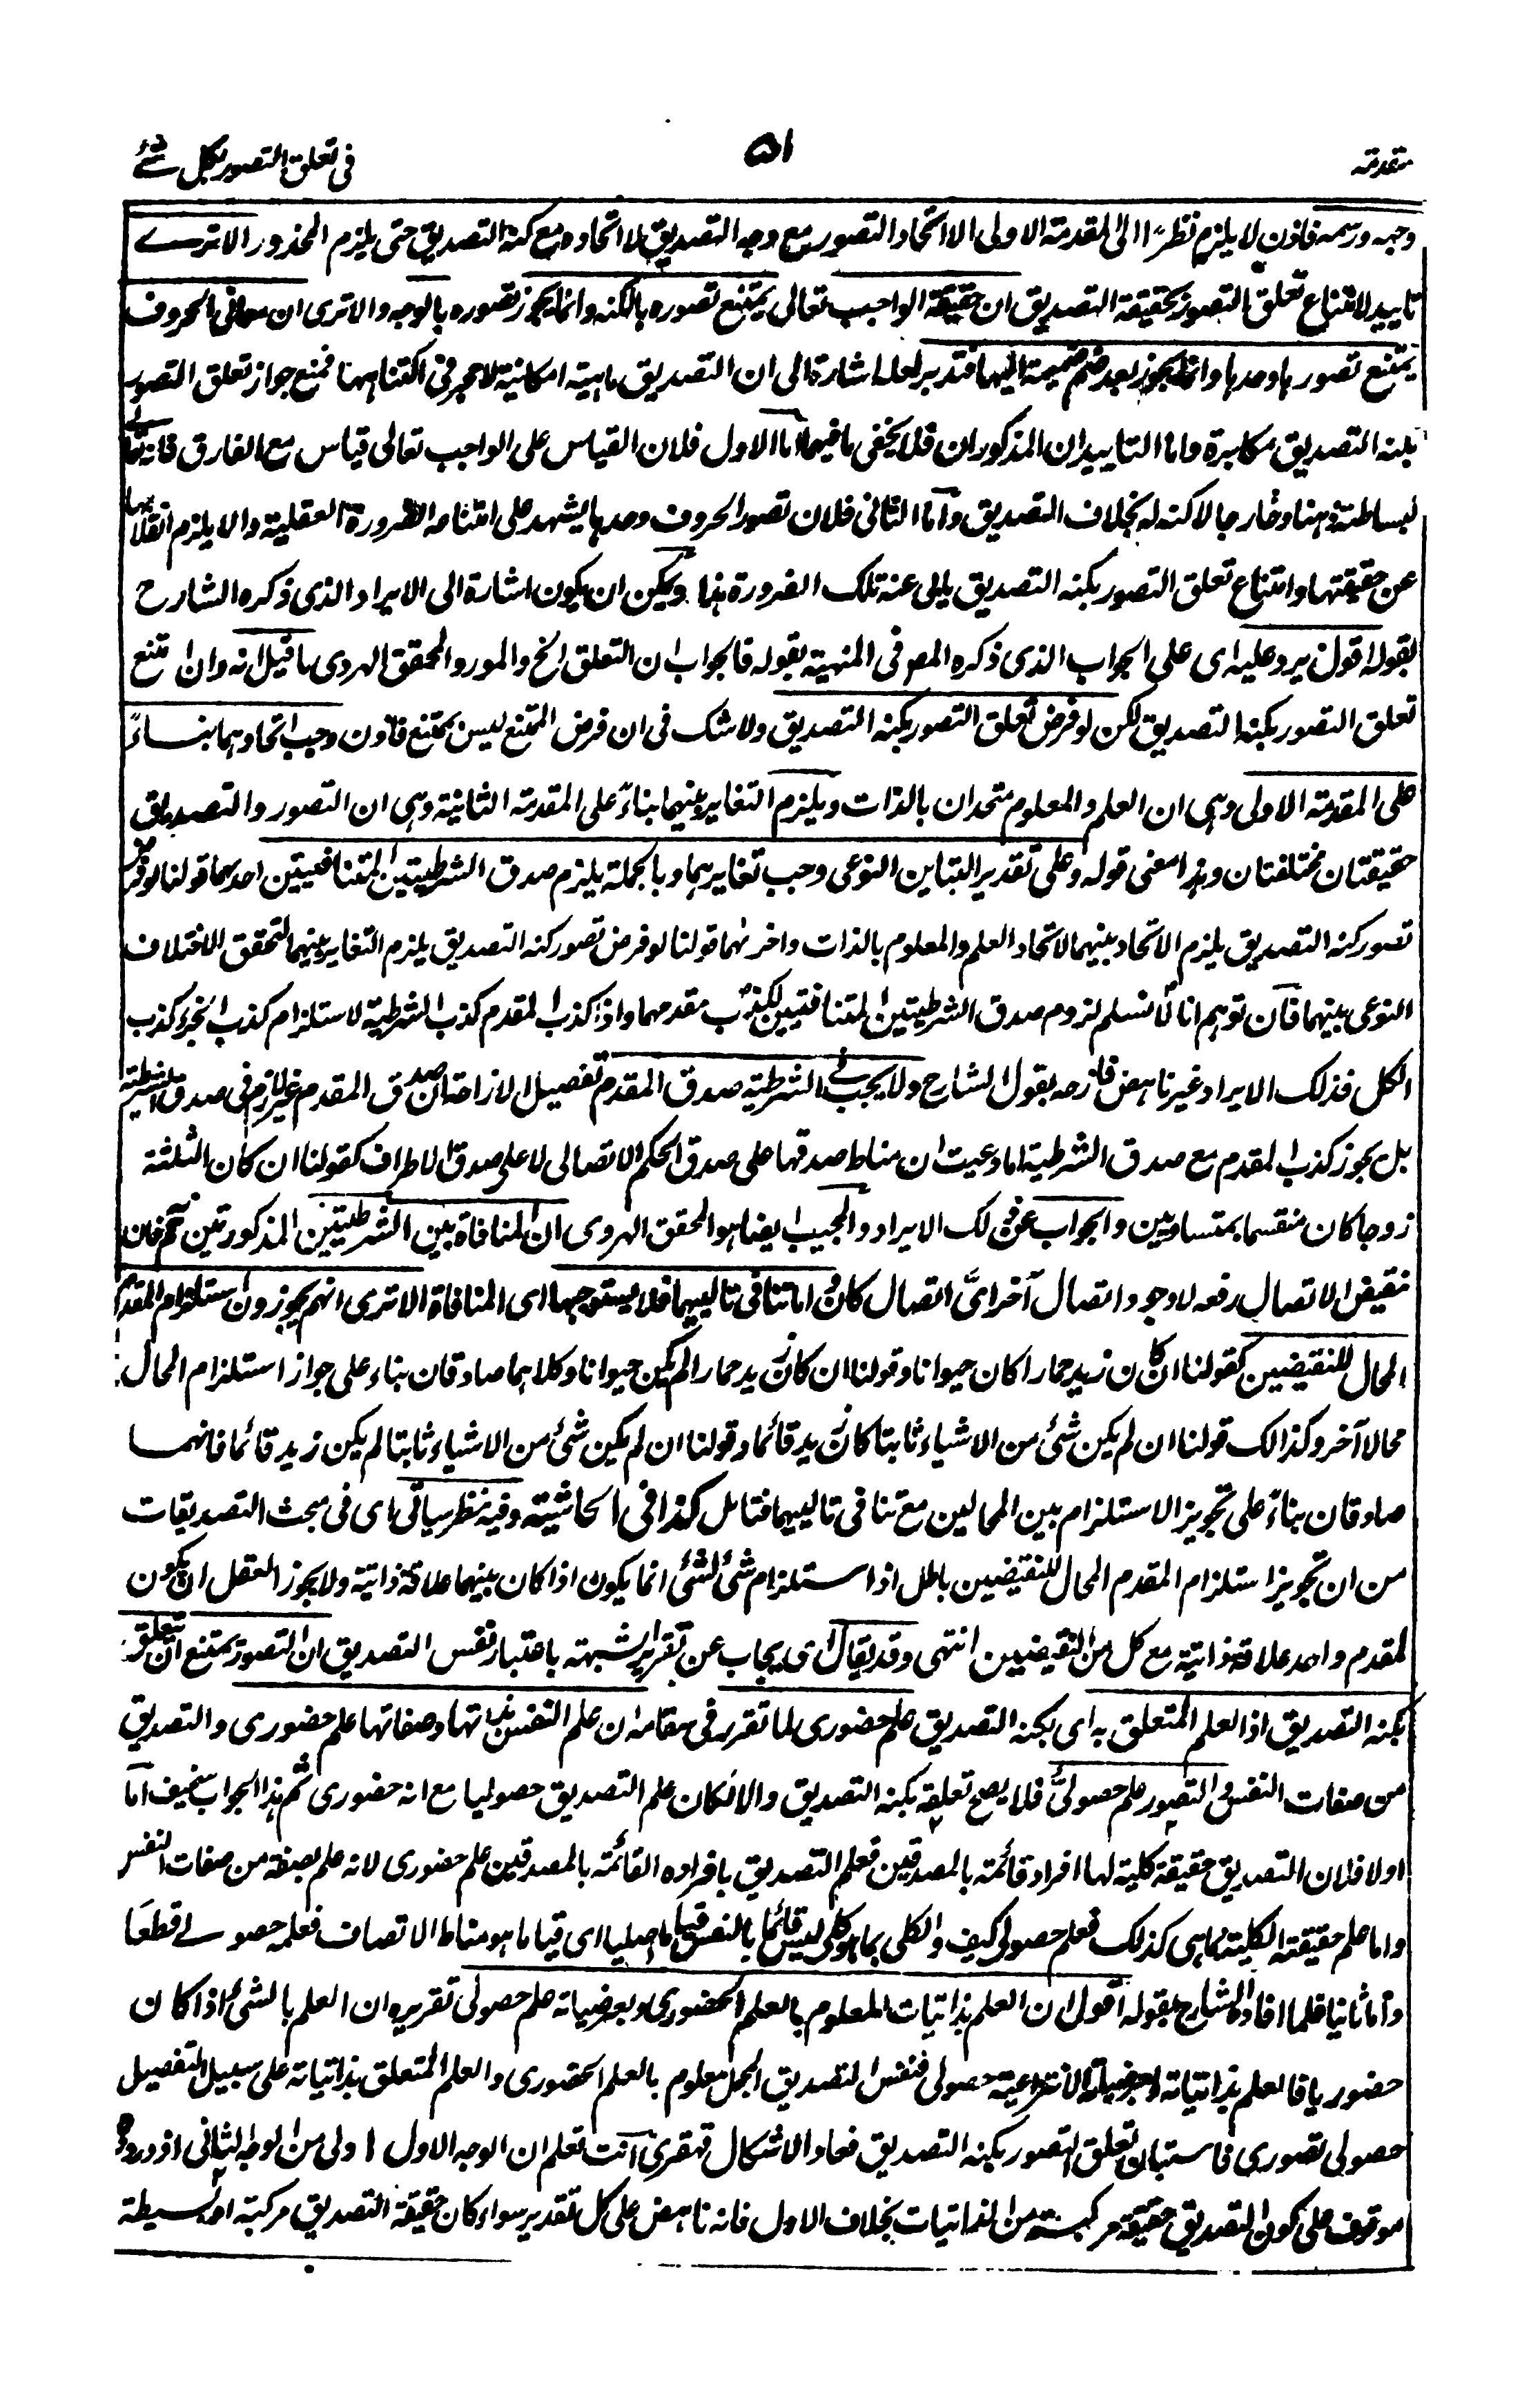 مقدمة
٥١
فى تعلق التصور بكل شئ
وجهه ورسمه فاذن لا يلزم نظرًا الى المقدمة الاولى الا اتحاد التصور مع وجه التصديق لا اتحاده مع كنه التصديق حتى يلزم المحذور الا ترے
تاييد لامتناع تعلق التصور بحقيقة التصديق ان حقيقة الواجب تعالى يمتنع تصوره بالكنه وانما يجوز تصوره بالوجه والا ترى ان معانى الحروف
يمتنع تصورها وحدها وانما يجوز بعد ضم ضميمة اليها فتدبر لعله اشارة الى ان التصديق ماهية امكانية لا حجر فى اكتناهها فمنع جواز تعلق التصور
بكنه التصديق مكابرة واما التاييدان المذكوران فلا يخفى ما فيهما اما الاول فلان القياس على الواجب تعالى قياس مع الفارق فانه تعالى
لبساطته ذهنا وخارجا لا كنه له بخلاف التصديق واما الثانى فلان تصور الحروف وحدها يشهد على امتناعه الضرورة العقلية والا يلزم انقلابها
عن حقيقتها وامتناع تعلق التصور بكنه التصديق يابى عنه تلك الضرورة هذا ويمكن ان يكون اشارة الى الايراد الذى ذكره الشارح
بقوله اقول يرد عليه اى على الجواب الذى ذكره المصـ فى المنهية بقوله فالجواب ان التعلق الخ والمورد المحقق الهروى ما قيل انه وان امتنع
تعلق التصور بكنه التصديق لكن لو فرض تعلق التصور بكنه التصديق ولا شك فى ان فرض الممتنع ليس بممتنع فاذن وجب اتحادهما بنـاءً
على المقدمة الاولى وهى ان العلم والمعلوم متحدان بالذات ويلزم التغاير بينهما بناءً على المقدمة الثانية وهى ان التصور والتصديق
حقيقتان مختلفتان وهذا معنى قوله وعلى تقدير التباين النوعى وجب تغايرهما وبالجملة يلزم صدق الشرطيتين المتنافيتين احدهما قولنا لو فرض
تصور كنه التصديق يلزم الاتحاد بينهما لاتحاد العلم والمعلوم بالذات واخرٰهما قولنا لو فرض تصور كنه التصديق يلزم التغاير بينهما لتحقق الاختلاف
النوعى بينهما فان توهم انا لا نسلم لزوم صدق الشرطيتين المتنافيتين لكذب مقدمهما واذا كذب المقدم كذب الشرطية لاستلزام كذب الجزء كذب
الكل فذلك الايراد غير ناهض فازحه بقول الشارح ولا يجب فے الشرطية صدق المقدم تفصيل الازاحة ان صدق المقدم غير لازم فى صدق الشرطية
بل يجوز كذب المقدم مع صدق الشرطية اما دعيت ان مناط صدقها على صدق الحكم الاتصالى لا على صدق الاطراف كقولنا ان كان الثلثة
زوجا كان منقسما بمتساويين والجواب عن ذلك الايراد والمجيب ايضا هو المحقق الهروى ان المنافاة بين الشرطيتين المذكورتين ثم فان
نقيض الاتصال رفعه لا وجود اتصال آخر اىَّ اتصال كان واما تنافى تالييهما فلا يستوجبها اى المنافاة الا ترى انهم يجوزون استلزام المقدم
المحال للنقيضين كقولنا ان كان زيد حمارا كان حيوانا وقولنا ان كان زيد حمارا لم يكن حيوانا وكلاهما صادقان بناء على جواز استلزام المحال
محالا آخر وكذالك قولنا ان لم يكن شئ من الاشياء ثابتا كان زيد قائما وقولنا ان لم يكن شئ من الاشياء ثابتا لم يكن زيد قائما فانهما
صادقان بناءً على تجويز الاستلزام بين المحالين مع تنافى تالييهما فتامل كذا فى الحاشية وفيه نظر سياتى اى فى مبحث التصديقات
من ان تجويز استلزام المقدم المحال للنقيضين باطل اذ استلزام شئ لشئ انما يكون اذا كان بينهما علاقة ذاتية ولا يجوز العقل ان يكون
لمقدم واحد علاقة ذاتية مع كل من النقيضين انتهى وقد يقال اى يجاب عن تقرير الشبهة باعتبار نفس التصديق ان التصور يمتنع ان يتعلق
بكنه التصديق اذ العلم المتعلق به اى بكنه التصديق علم حضورى لما تقرر فى مقامه ان علم النفس بذاتها وصفاتها علم حضورى والتصديق
من صفات النفس والتصور علم حصولىٌّ فلا يصح تعلقه بكنه التصديق والا لكان علم التصديق حصوليا مع انه حضورى ثم هذا الجواب سخيف اما
اولا فلان التصديق حقيقة كلية لها افراد قائمة بالمصدقين فعلم التصديق بافراده القائمة بالمصدقين علم حضورى لانه علم بصفة من صفات النفس
واما علم حقيقته الكلية كما هى كذلك فعلم حصولى كيف والكلى بما هو كلى ليس قائما بالنفس قياما اصليا اى قياما هو مناط الاتصاف فعلمه حصولے قطعًا
واما ثانيا فلما افاده الشارح بقوله اقول ان العلم بذاتيات المعلوم بالعلم الحضورى وبعرضياته علم حصولى تقريره ان العلم بالشئ اذا كان
حضوريا فالعلم بذاتياته وبعرضياته الانتزاعية حصولى فنفس التصديق المجمل معلوم بالعلم الحضورى والعلم المتعلق بذاتياته على سبيل التفصيل
حصولى تصورى فاستبان تعلق التصور بكنه التصديق فعاد الاشكال قهقرى انت تعلم ان الوجه الاول اولى من الوجه الثانى اذ وروده
موقوف على كون التصديق حقيقة مركبة من الذاتيات بخلاف الاول فانه ناهض على كل تقدير سواء كان حقيقة التصديق مركبة او بسيطة